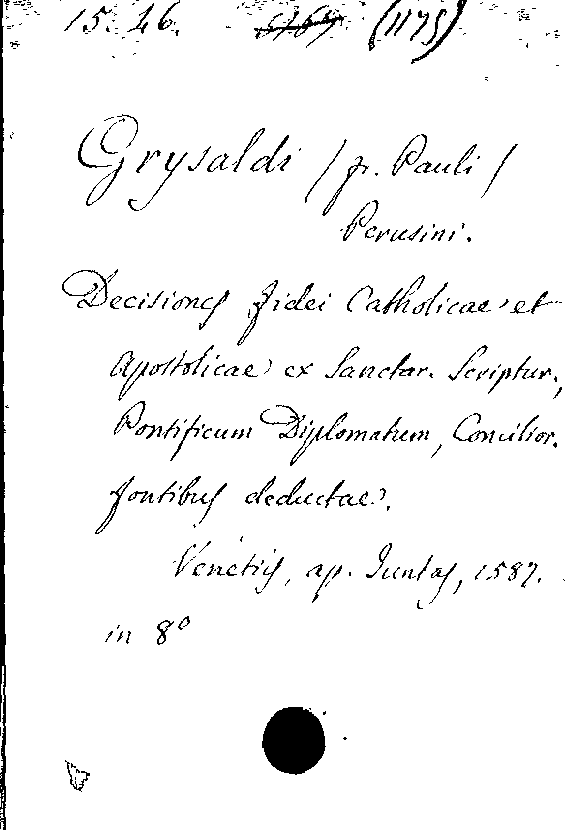 15. 26. (1175)
Grysaldi /fr. Pauli/
Perusini.
Decisiones fidei Catholicae et
Apostolicae ex Sanctar. Scriptur.,
Pontificum Diplomatum, Concilior.
fontibus deductae.
Venetiis, ap. Juntas, 1587.
in 8°